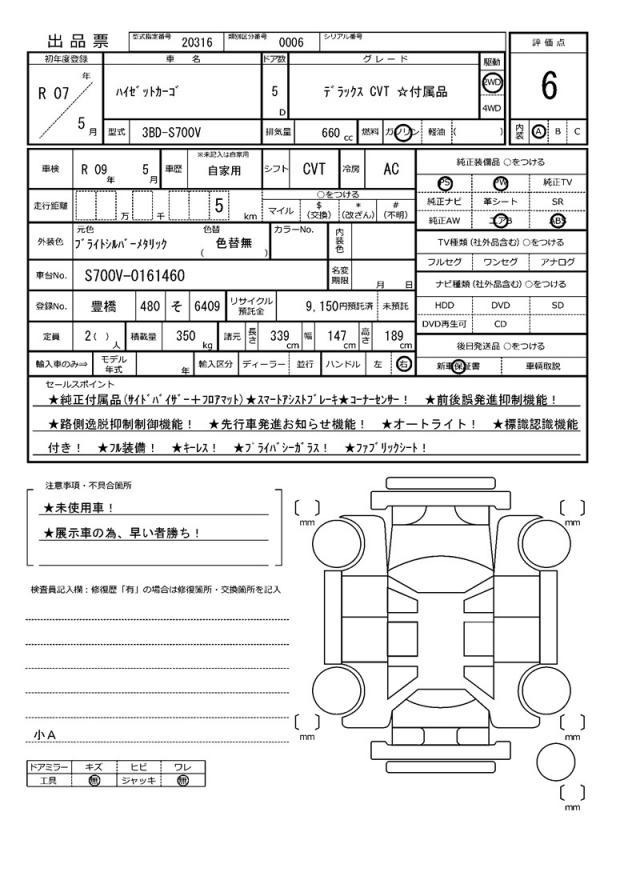 出品票 型式指定番号 20316 類別区分番号 0006 シリアル番号
評価点
6
初年度登録 車名 ドア数 グレード 駆動
R 07 年 5 月 ハイゼットカーゴ 5 D デラックス CVT ☆付属品 2WD
4WD
型式 3BD-S700V 排気量 660 cc 燃料 ガソリン 軽油 ( ) 内装 A B C
車検 R 09 年 5 月 車歴 ※未記入は自家用 自家用 シフト CVT 冷房 AC
走行距離 万 千 5 km ○をつける
マイル $ (交換) * (改ざん) # (不明)
外装色 元色 ブライトシルバーメタリック 色替 ( 色替無 ) カラーNo. 内装色
車台No. S700V-0161460 名変期限 月 日
登録No. 豊橋 480 そ 6409 リサイクル預託金 9,150円預託済 未預託
定員 2( ) 人 積載量 350 kg 諸元 長さ 339 cm 幅 147 cm 高さ 189 cm
輸入車のみ⇒ モデル年式 年 輸入区分 ディーラー 並行 ハンドル 左 右
純正装備品 ○をつける
PS PW 純正TV
純正ナビ 革シート SR
純正AW エアB ABS
TV種類(社外品含む)○をつける
フルセグ ワンセグ アナログ
ナビ種類(社外品含む)○をつける
HDD DVD SD
DVD再生可 CD
後日発送品 ○をつける
新車保証書 車輌取説
セールスポイント
★純正付属品(サイドバイザー+フロアマット)★スマートアシストブレーキ★コーナーセンサー! ★前後誤発進抑制機能!
★路側逸脱抑制制御機能! ★先行車発進お知らせ機能! ★オートライト! ★標識認識機能
付き! ★フル装備! ★キーレス! ★プライバシーガラス! ★ファブリックシート!
注意事項・不具合箇所
★未使用車!
★展示車の為、早い者勝ち!
検査員記入欄:修復歴「有」の場合は修復箇所・交換箇所を記入
小A
ドアミラー キズ ヒビ ワレ
工具 無 ジャッキ 無
[ ] mm
[ ] mm
[ ] mm
[ ] mm
[ ] mm